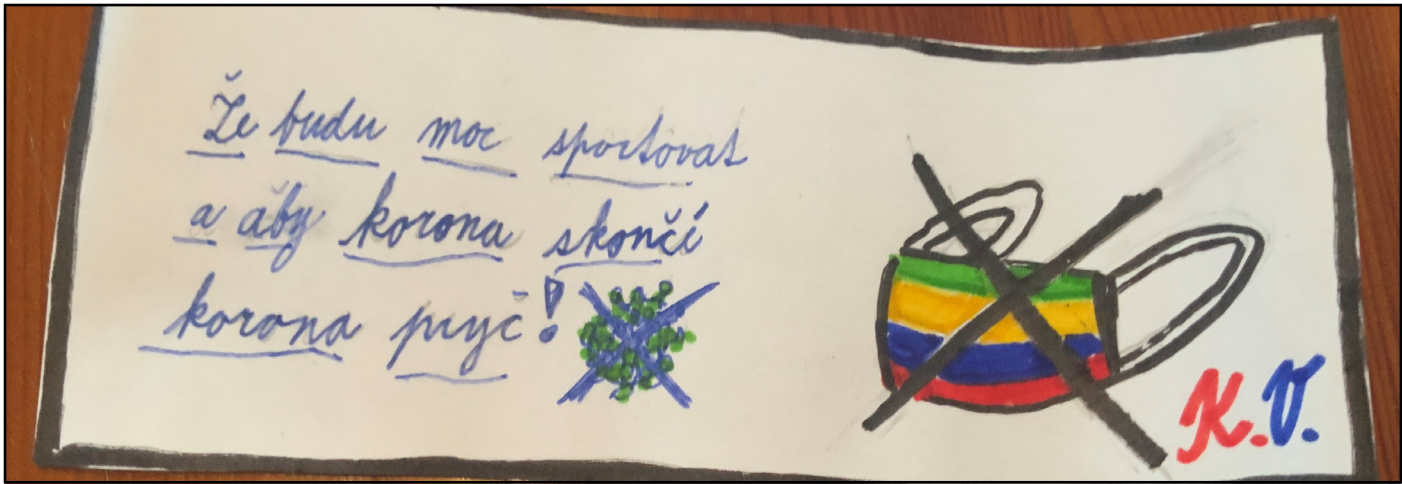 Že budu moc sportovat
a aby korona skončí
korona pryč!
K.V.